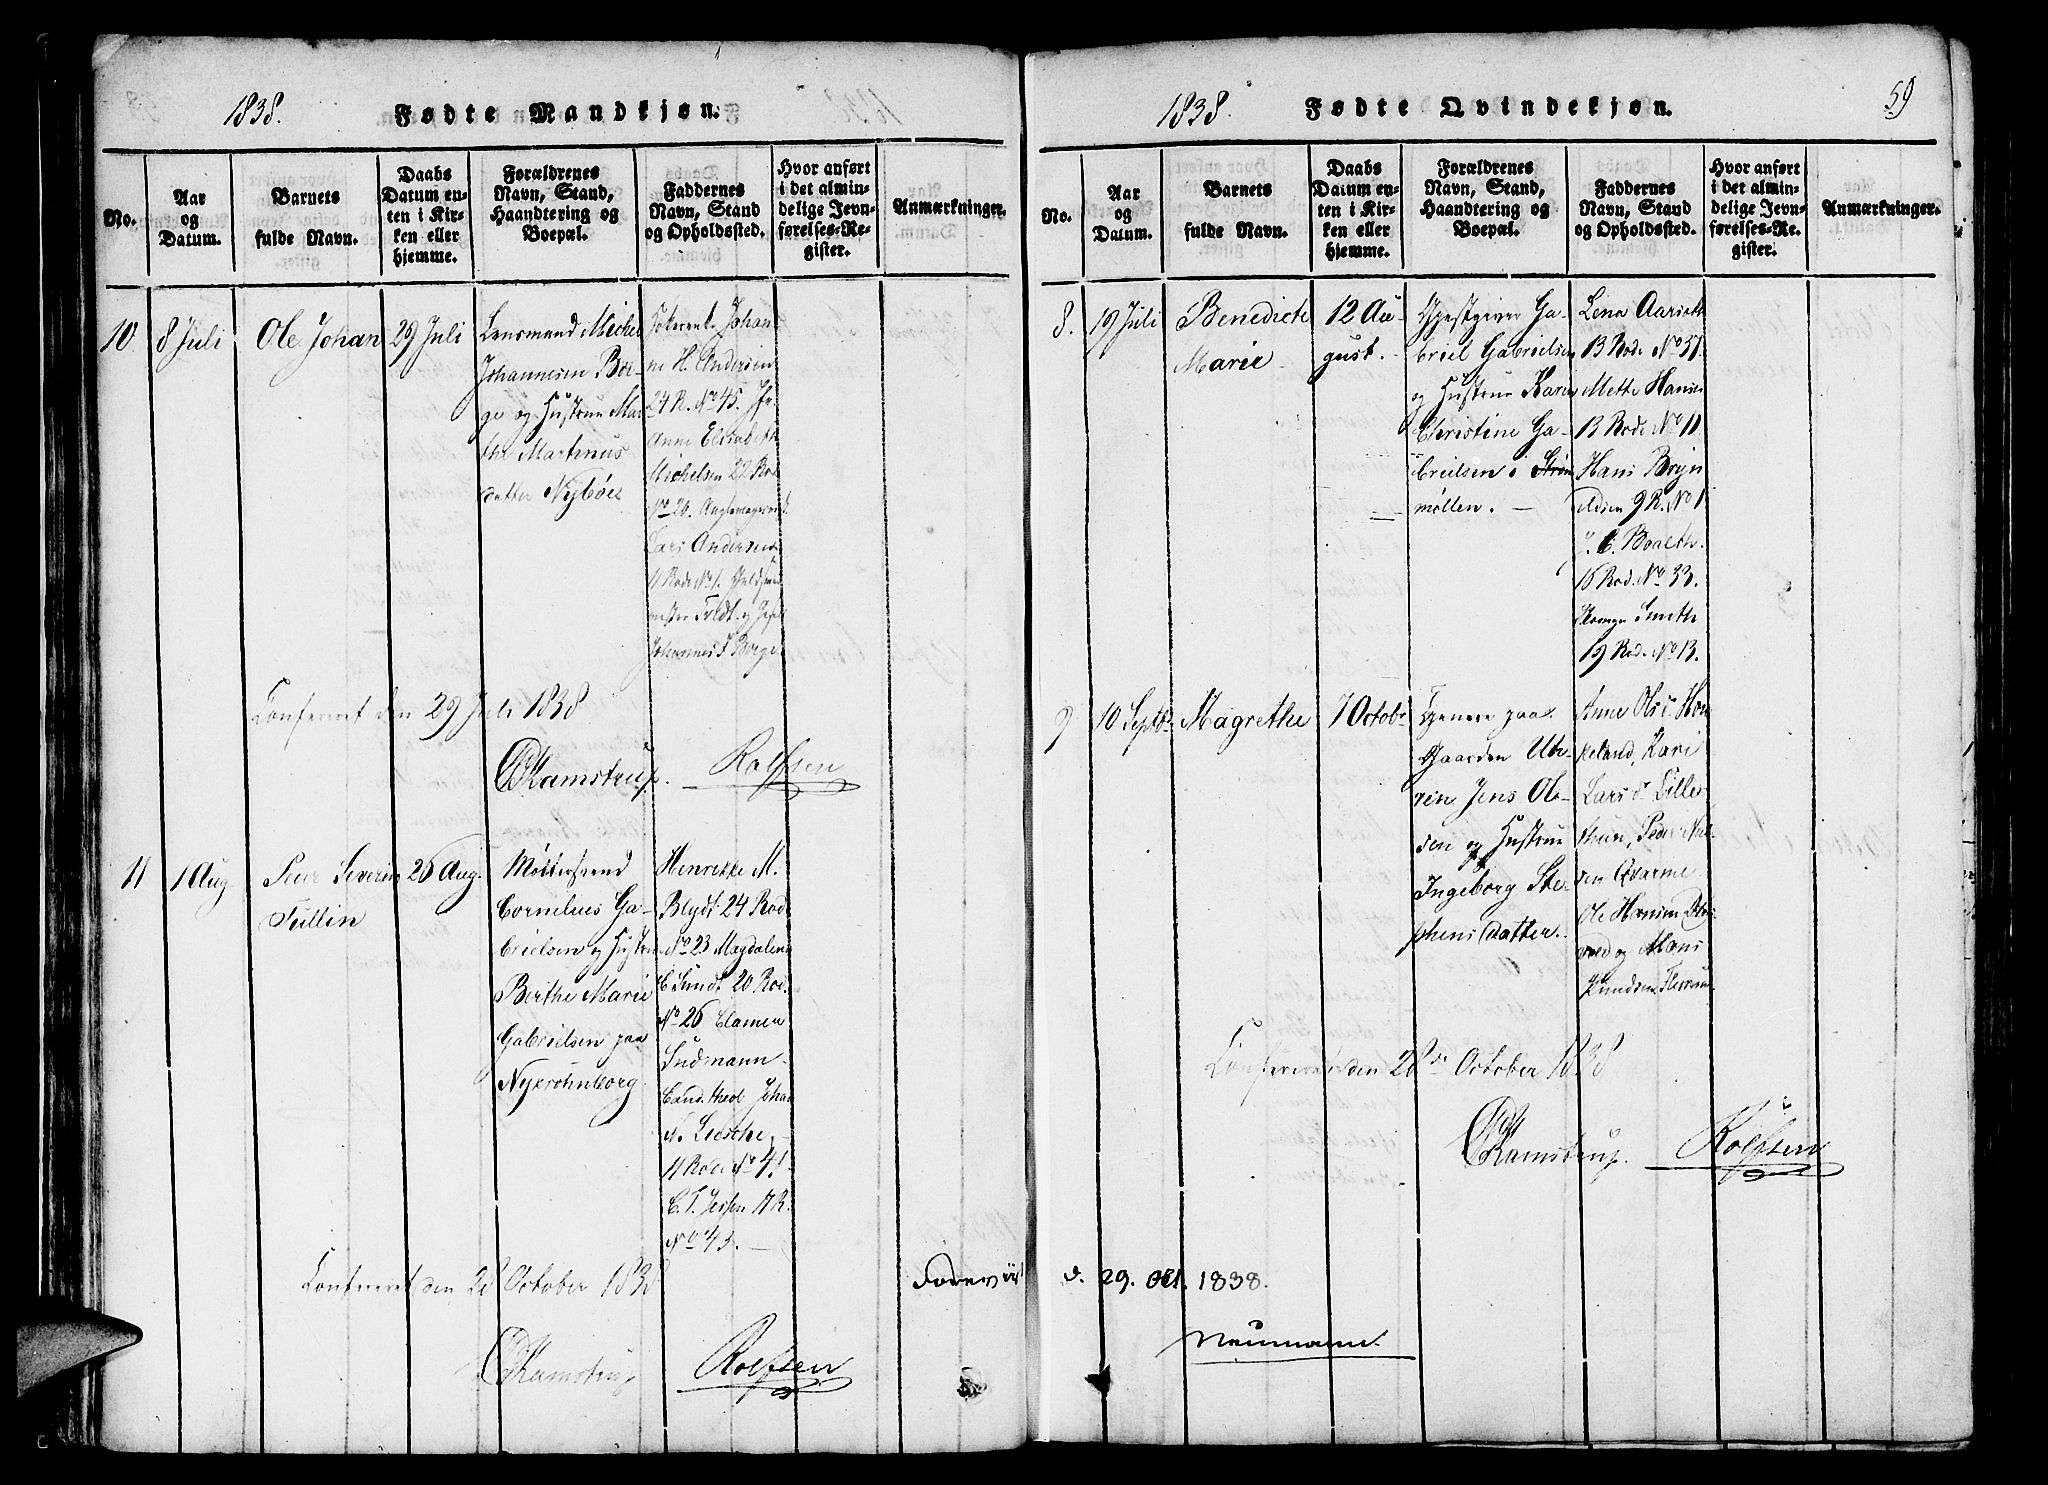 1838.
Fødte Mandkjøn.
No.
Aar
og
Datum.
Barnets
fulde Navn.
Daabs
Datum en-
ten i Kir-
ken eller
hjemme.
Forældrenes
Navn, Stand,
Haandtering og
Boepæl.
Faddernes
Navn, Stand
og Opholdssted.
Hvor anført
i det almin-
delige Jevn-
førelses-Re-
gister.
Anmærkninger.
10
8 Juli
Ole Johan
29 Juli
Lensmand Michel
Johannesen Bor-
ge og Hustrue Mar
the Martinus
datter Nybøe
Johan-
ne H. Andersen
24 R. No 45. Jr.
Anne Elisabeth
Michelsen 22 Rod
No 20.
Lars Andersen
11 Rode No 1.
Johannes Borge
Confereret den 29 Juli 1838
Kamstrup.
Rolfsen
11
1 Aug
Peer Severin
Tullin
26 Aug.
Møllersvend
Cornelius Ga-
brielsen og Hustrue
Berthe Marie
Gabrielsen paa
Nykrohnborg
Henrikke M.
Blydt 24 Rod.
No 23 Magdalena
C Sundt 20 Rod.
No 26 Clamen
Sudmann
Cand. theol Johan
N. Liesche
11 Rode No 41
C. T. Jessen 17 R.
No 43.
Confereret den 28 October 1838
Kamstrup
Rolfsen
Foreviist
1838.
Fødte Qvindekjøn.
59
No.
Aar
og
Datum.
Barnets
fulde Navn.
Daabs
Datum en-
ten i Kir-
ken eller
hjemme.
Forældrenes
Navn, Stand,
Haandtering og
Boepæl.
Faddernes
Navn, Stand
og Opholdssted.
Hvor anført
i det almin-
delige Jevn-
førelses-Re-
gister.
Anmærkninger.
8.
19 Juli
Benedicte
Marie
12 Au-
gust.
Gjestgiver Ga-
briel Gabrielsen
og Hustrue Karen
Christine Ga-
brielsen i Strøm
møllen.
Lena Aarseth
13 Rode No 37.
Mette Hansen
13 Rode No 11
Hans Bryn
eldsen 9 R. No 1
C. Boalth.
16 Rod. No 33.
Smith
19 Rod. No 13.
9
10 Septb.
Magrethe
7 Octobr
Tjenere paa
Gaarden Ut-
ren Jens Ole-
sen og Hustrue
Ingeborg Ste-
phens datter.
Anne Ols dr. Hau
keland, Kari
Lars dr. Tiller
thun, Peder Niel
sen Qvarme
Ole Hansen
og Mons
Knudsen
Confereret den 28de October 1838
Kamstrup.
Rolfsen
d. 29. Oct. 1838.
Neumann.